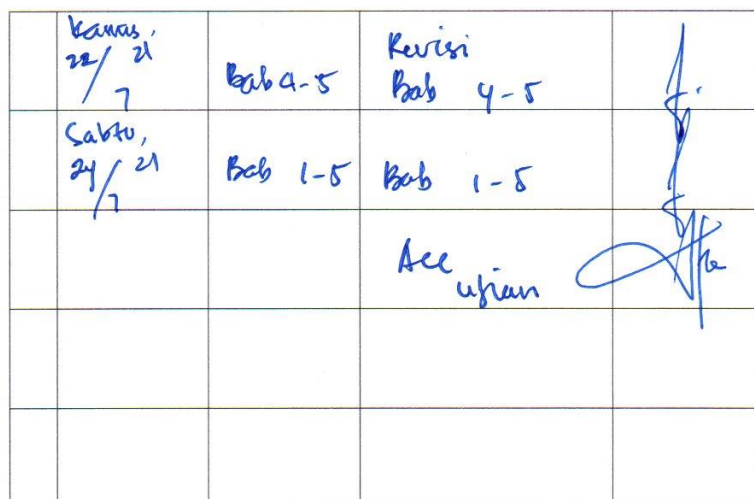 Kamis,
22/7 21
Bab 4-5
Revisi
Bab 4-5
Sabtu,
24/7 21
Bab 1-5
Bab 1-5
Acc
ujian